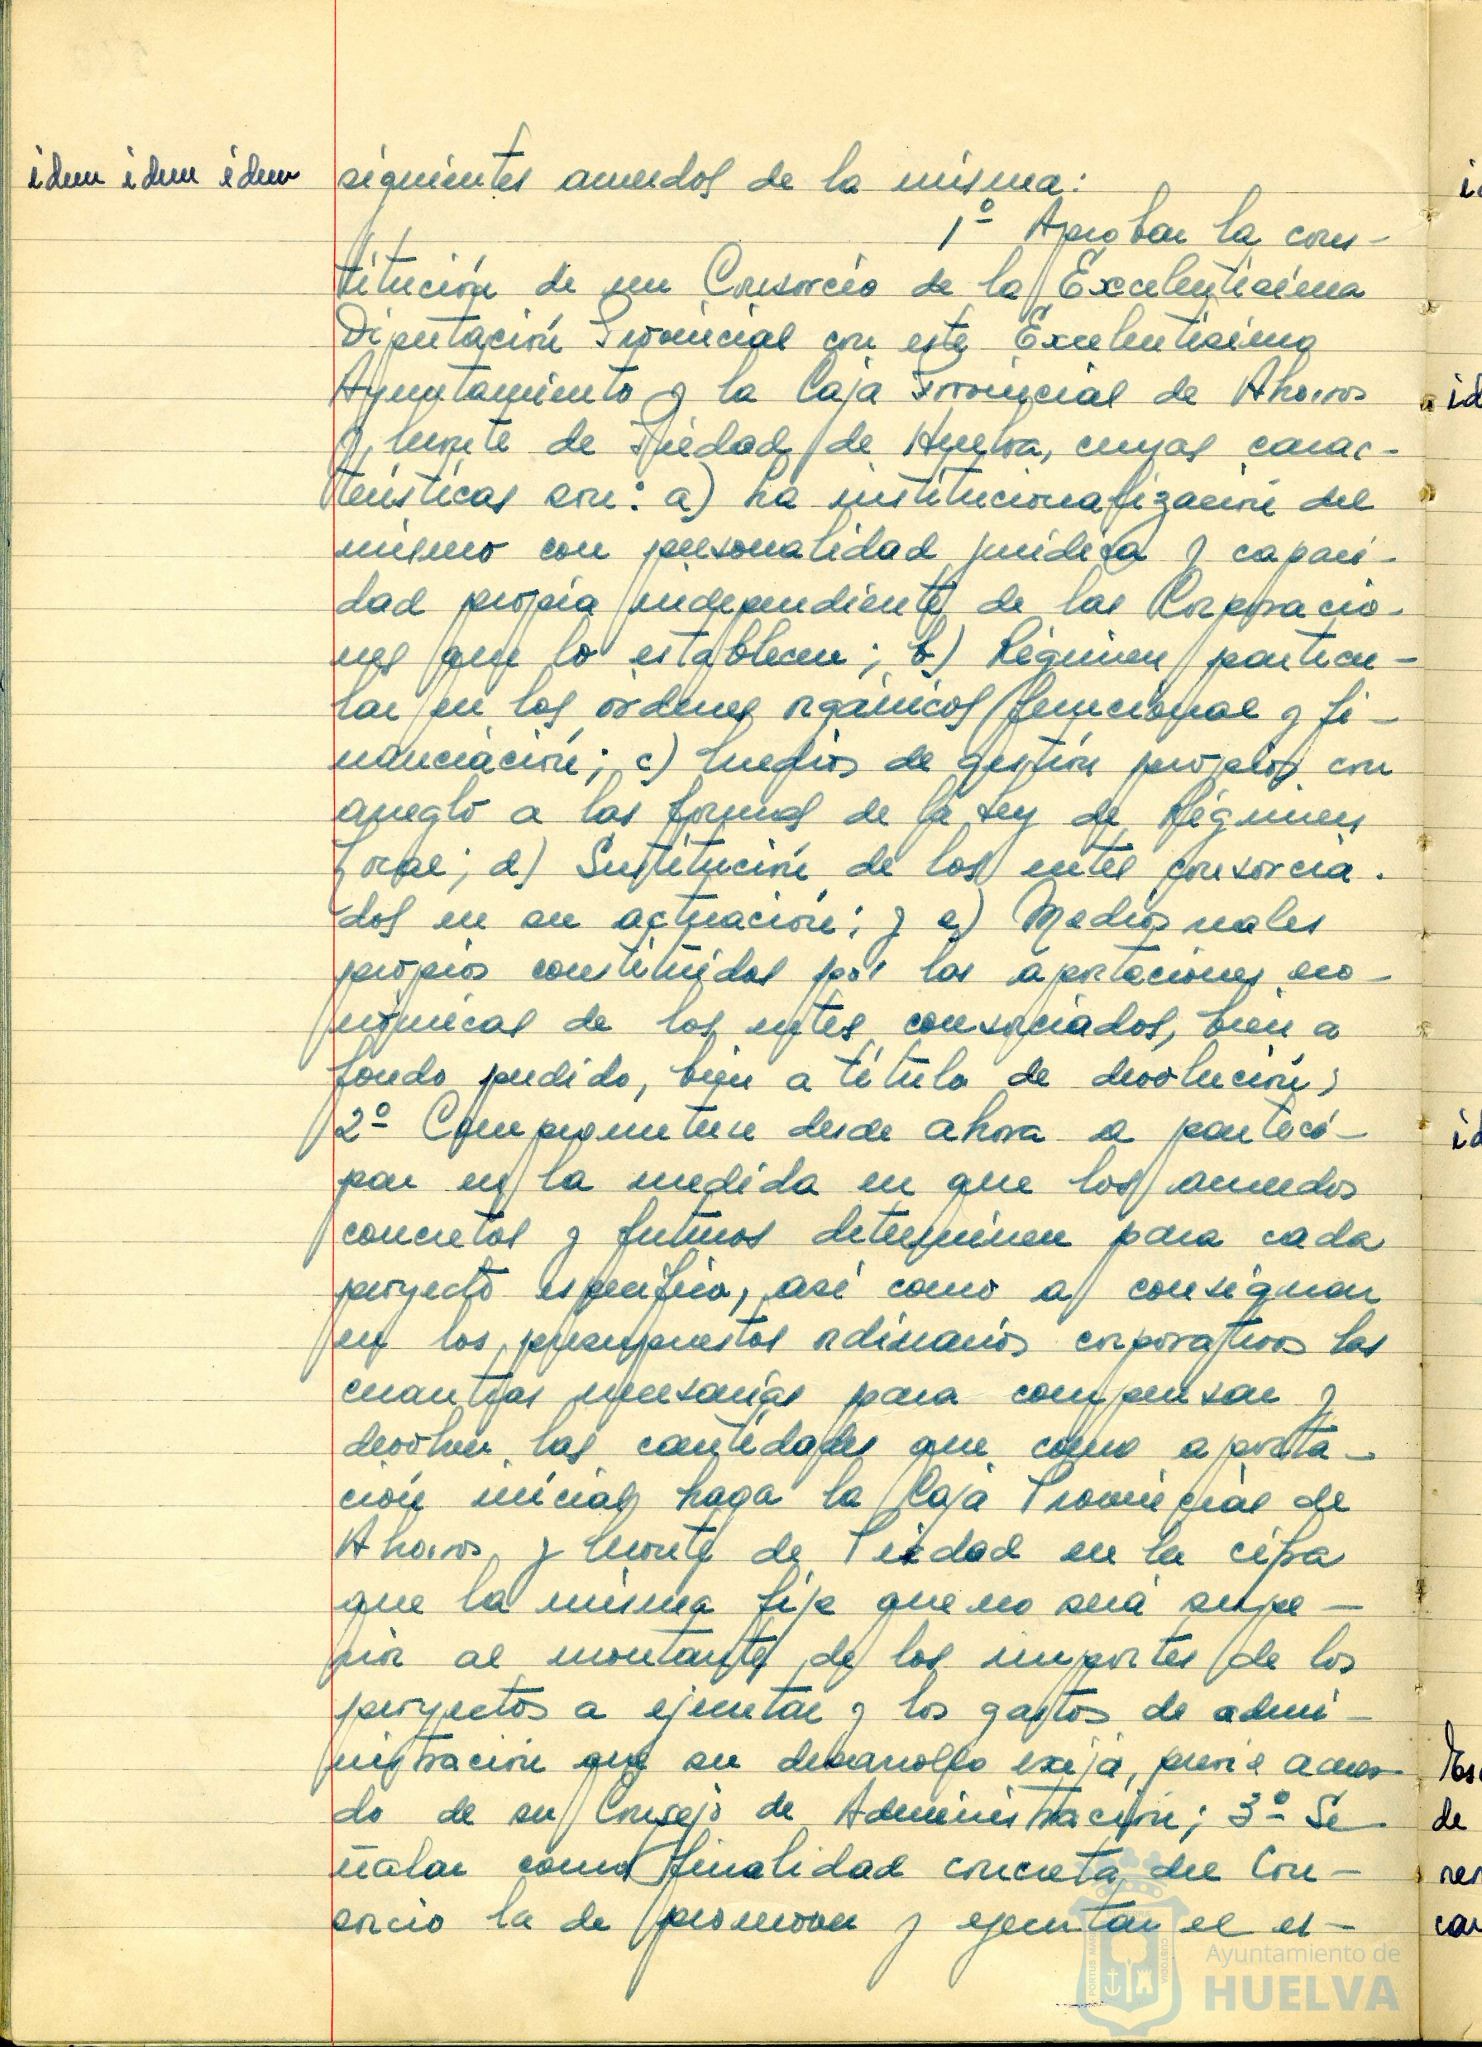 idem idem idem
siguientes acuerdos de la misma:
1º Aprobar la cons-
titución de un Consorcio de la Excelentísima
Diputación Provincial con este Excelentísimo
Ayuntamiento y la Caja Provincial de Ahorros
y Monte de Piedad de Huelva, cuyas carac-
terísticas son: a) La institucionalización del
mismo con personalidad jurídica y capaci-
dad propia independiente de las Corporacio-
nes que lo establecen; b) Régimen particu-
lar en los órdenes orgánicos funcional y fi-
nanciación; c) Medios de gestión propios con
arreglo a las formas de la Ley de Régimen
Local; d) Sustitución de los entes consorcia-
dos en su actuación; y e) Medios reales
propios constituidos por las aportaciones eco-
nómicas de los entes consorciados, bien a
fondo perdido, bien a título de devolución;
2º Comprometerse desde ahora a partici-
par en la medida en que los acuerdos
concretos y futuros determinen para cada
proyecto específico, así como a consignar
en los presupuestos ordinarios corporativos las
cuantías necesarias para compensar y
devolver las cantidades que como aporta-
ción inicial haga la Caja Provincial de
Ahorros y Monte de Piedad en la cifra
que la misma fije que no será supe-
rior al montante de los importes de los
proyectos a ejecutar y los gastos de admi-
nistración que su desarrollo exija, previo acuer-
do de su Consejo de Administración; 3º Se-
ñalar como finalidad concreta del Con-
sorcio la de promover y ejecutar el es-
Ayuntamiento de
HUELVA
PORTUS MARIS
CUSTODIA
id
id
id
Es
de
rer
car